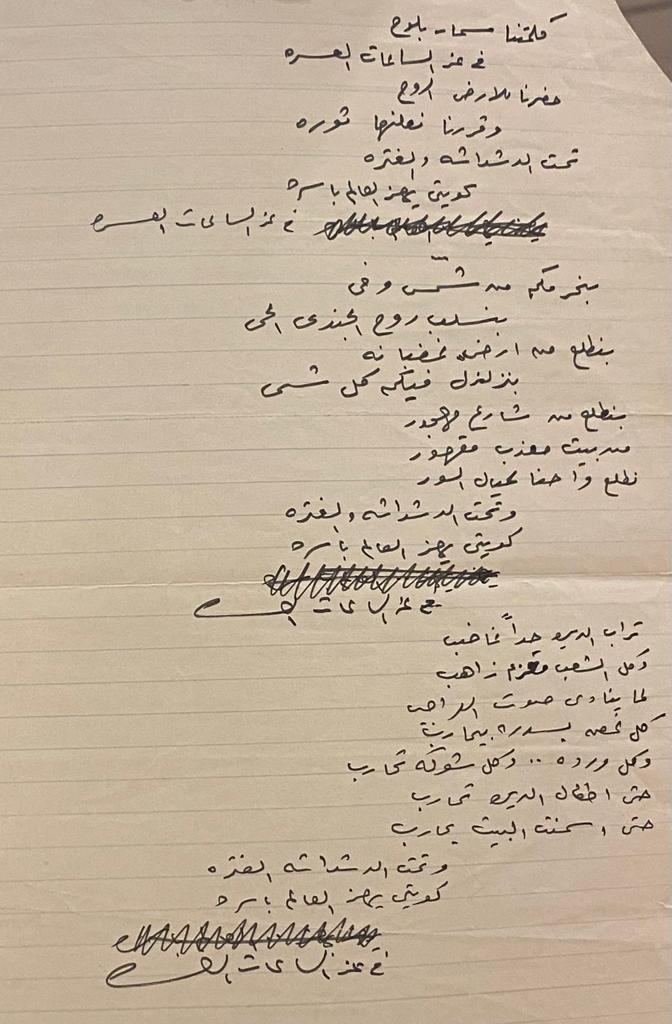 كلمتنا سمات بلوح
في عز الساعات العسره
حفرنا للارض الروح
وقررنا نعلنها ثوره
تحت الدشداشه والغتره
كويتي يهز العالم باسره
في عز الساعات العسره
بنحرمكم من شمس وفي
بنسلب روح الجندي الحي
بنطلع من ارض غضبانه
بنزلزل فيكم كل شي
بنطلع من شارع مهجور
من بيت معذب مقهور
نطلع واحنا خيال السور
وتحت الدشداشه والغتره
كويتي يهز العالم باسره
في عز الساعات العسره
تراب الديره جداً غاضب
وكل الشعب زاهب
لما ينادي صوت الواجب
كل غصن بسدره بيحارب
وكل ورده .. وكل شوكه تحارب
حتى اطفال الديره تحارب
حتى اسمنت البيت يحارب
وتحت الدشداشه الغتره
كويتي يهز العالم باسره
في عز الساعات العسره